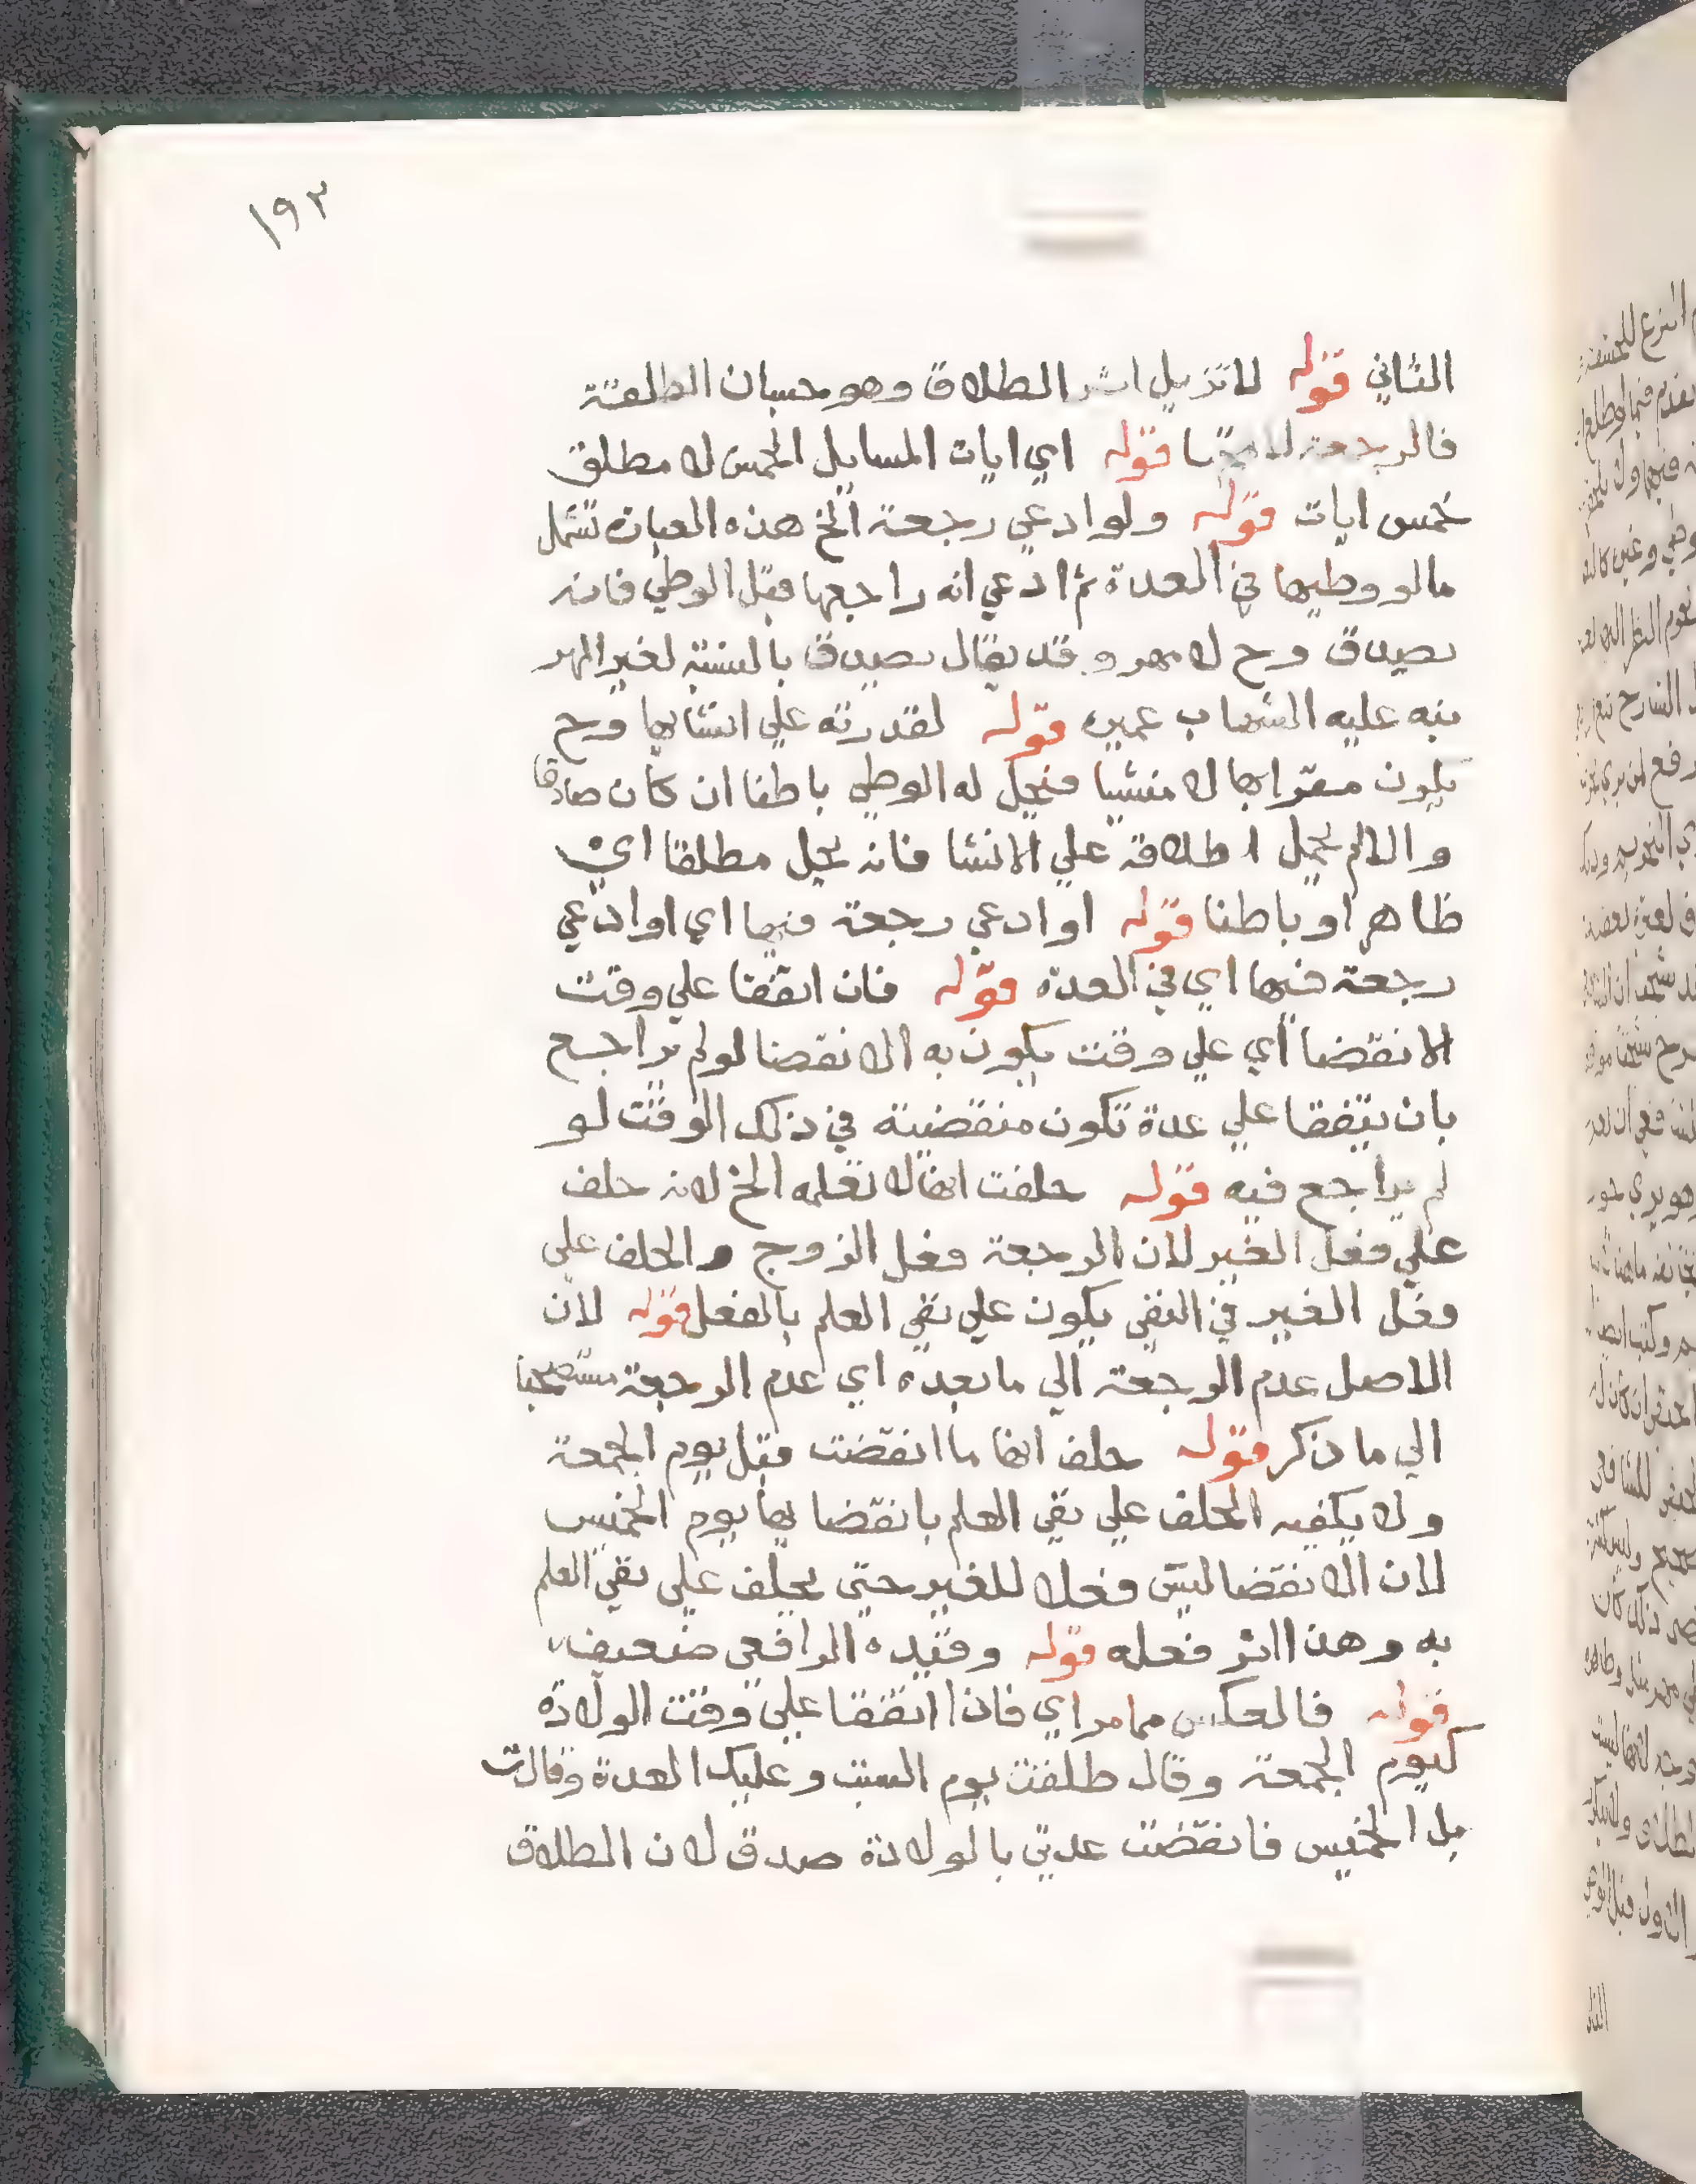 ١٩٣
الثاني قوله لا تزيل اثر الطلاق وهو حسبان الطلقة
فالرجعة قوله اي ايات المسايل الخمس لا مطلق
خمس ايات قوله ولو ادعي رجعة الخ هذه العبارة تشمل
مالو وطيها في العدة ثم ادعي انه راجعها قبل الوطي فانه
يصدق وح لا مهر وقد يقال يصدق بالنسبة لغير المهر
نبه عليه الشهاب عميره قوله لقدرته علي انشايها وح
يكون مقرا بها لا منشيا فيحل له الوطي باطنا ان كان صادقا
والا لم يحل اطلاقه علي الانشا فانه يحل مطلقا اي
ظاهر او باطنا قوله او ادعي رجعة فيها اي او ادعي
رجعة فيها اي في العدة قوله فان اتفقا علي وقت
الانقضا اي علي وقت يكون به الانقضا لو لم يراجع
بان يتفقا علي عدة تكون منقضية في ذلك الوقت لو
لم يراجع فيه قوله حلفت انها لا تعلمه الخ لانه حلف
علي فعل الغير لان الرجعة فعل الزوج والحلف علي
فعل الغير في النفي يكون علي نفي العلم بالفعل قوله لان
الاصل عدم الرجعة الي ما بعده اي عدم الرجعة مستصحبا
الي ما ذكر قوله حلف انها ما انقضت قبل يوم الجمعة
ولا يكفيه الحلف علي نفي العلم بانقضايها يوم الخميس
لان الانقضا ليس فعلا للغير حتي يحلف علي نفي العلم
به وهذا اثر فعله قوله وقيده الرافعي ضعيف
قوله فالعكس مما مر اي فاذا اتفقا علي وقت الولادة
كيوم الجمعة وقال طلقت يوم السبت وعليك العدة وقالت
بل الخميس فانقضت عدتي بالولادة صدق لان الطلاق